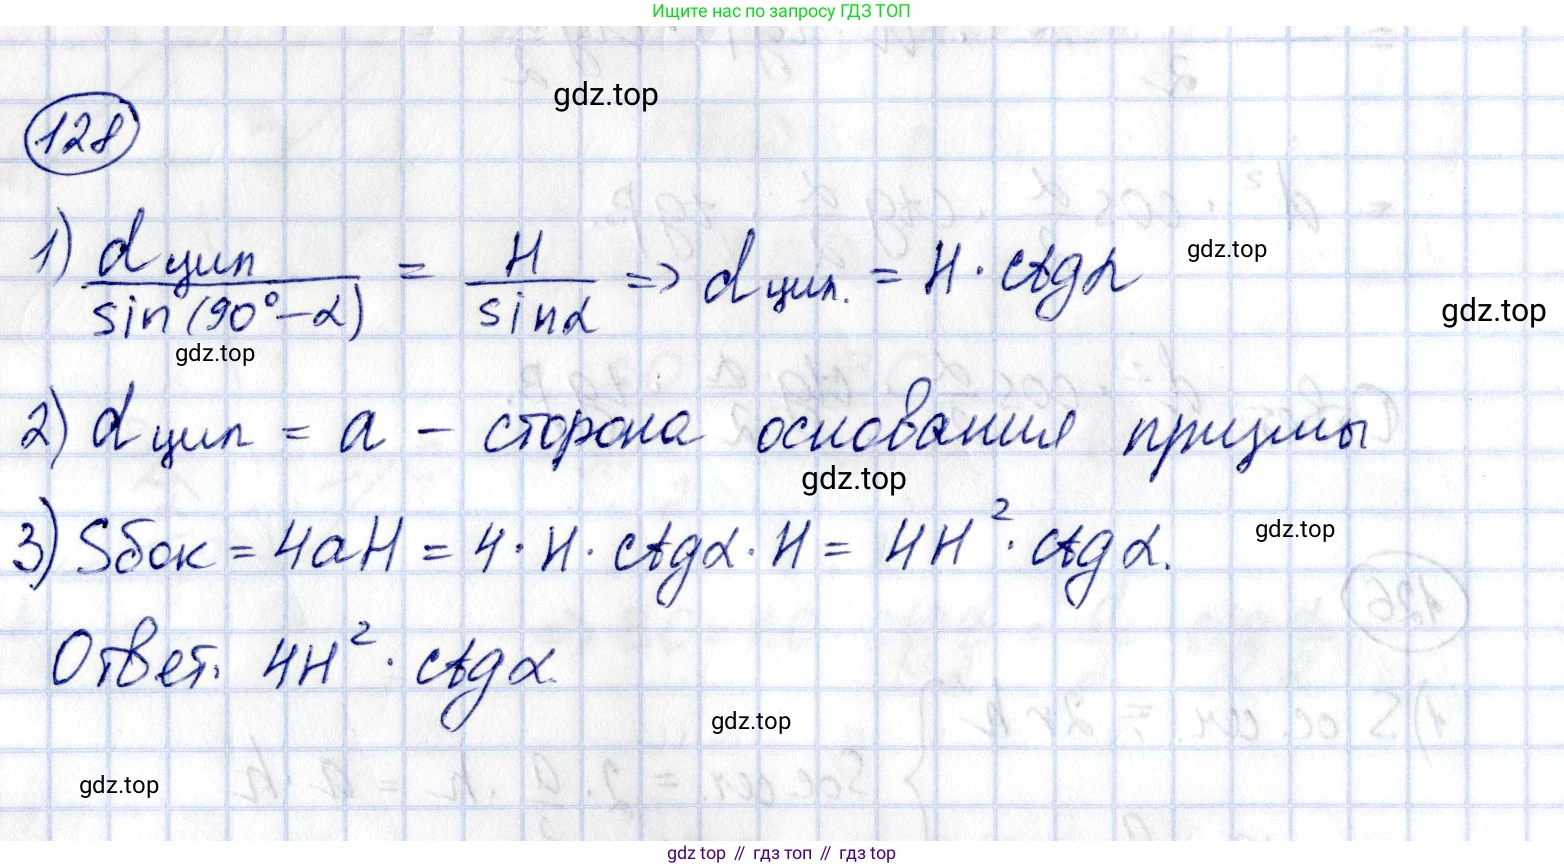 Ищите нас по запросу ГДЗ ТОП
gdz.top
128
1) dцил / sin(90°-α) = H / sinα => dцил. = H · ctgα
gdz.top
gdz.top
gdz.top
2) dцил = a - сторона основания призмы
gdz.top
3) Sбок = 4aH = 4 · H · ctgα · H = 4H² · ctgα.
gdz.top
Ответ: 4H² · ctgα.
gdz.top
gdz.top
gdz.top // гдз топ // гдз top